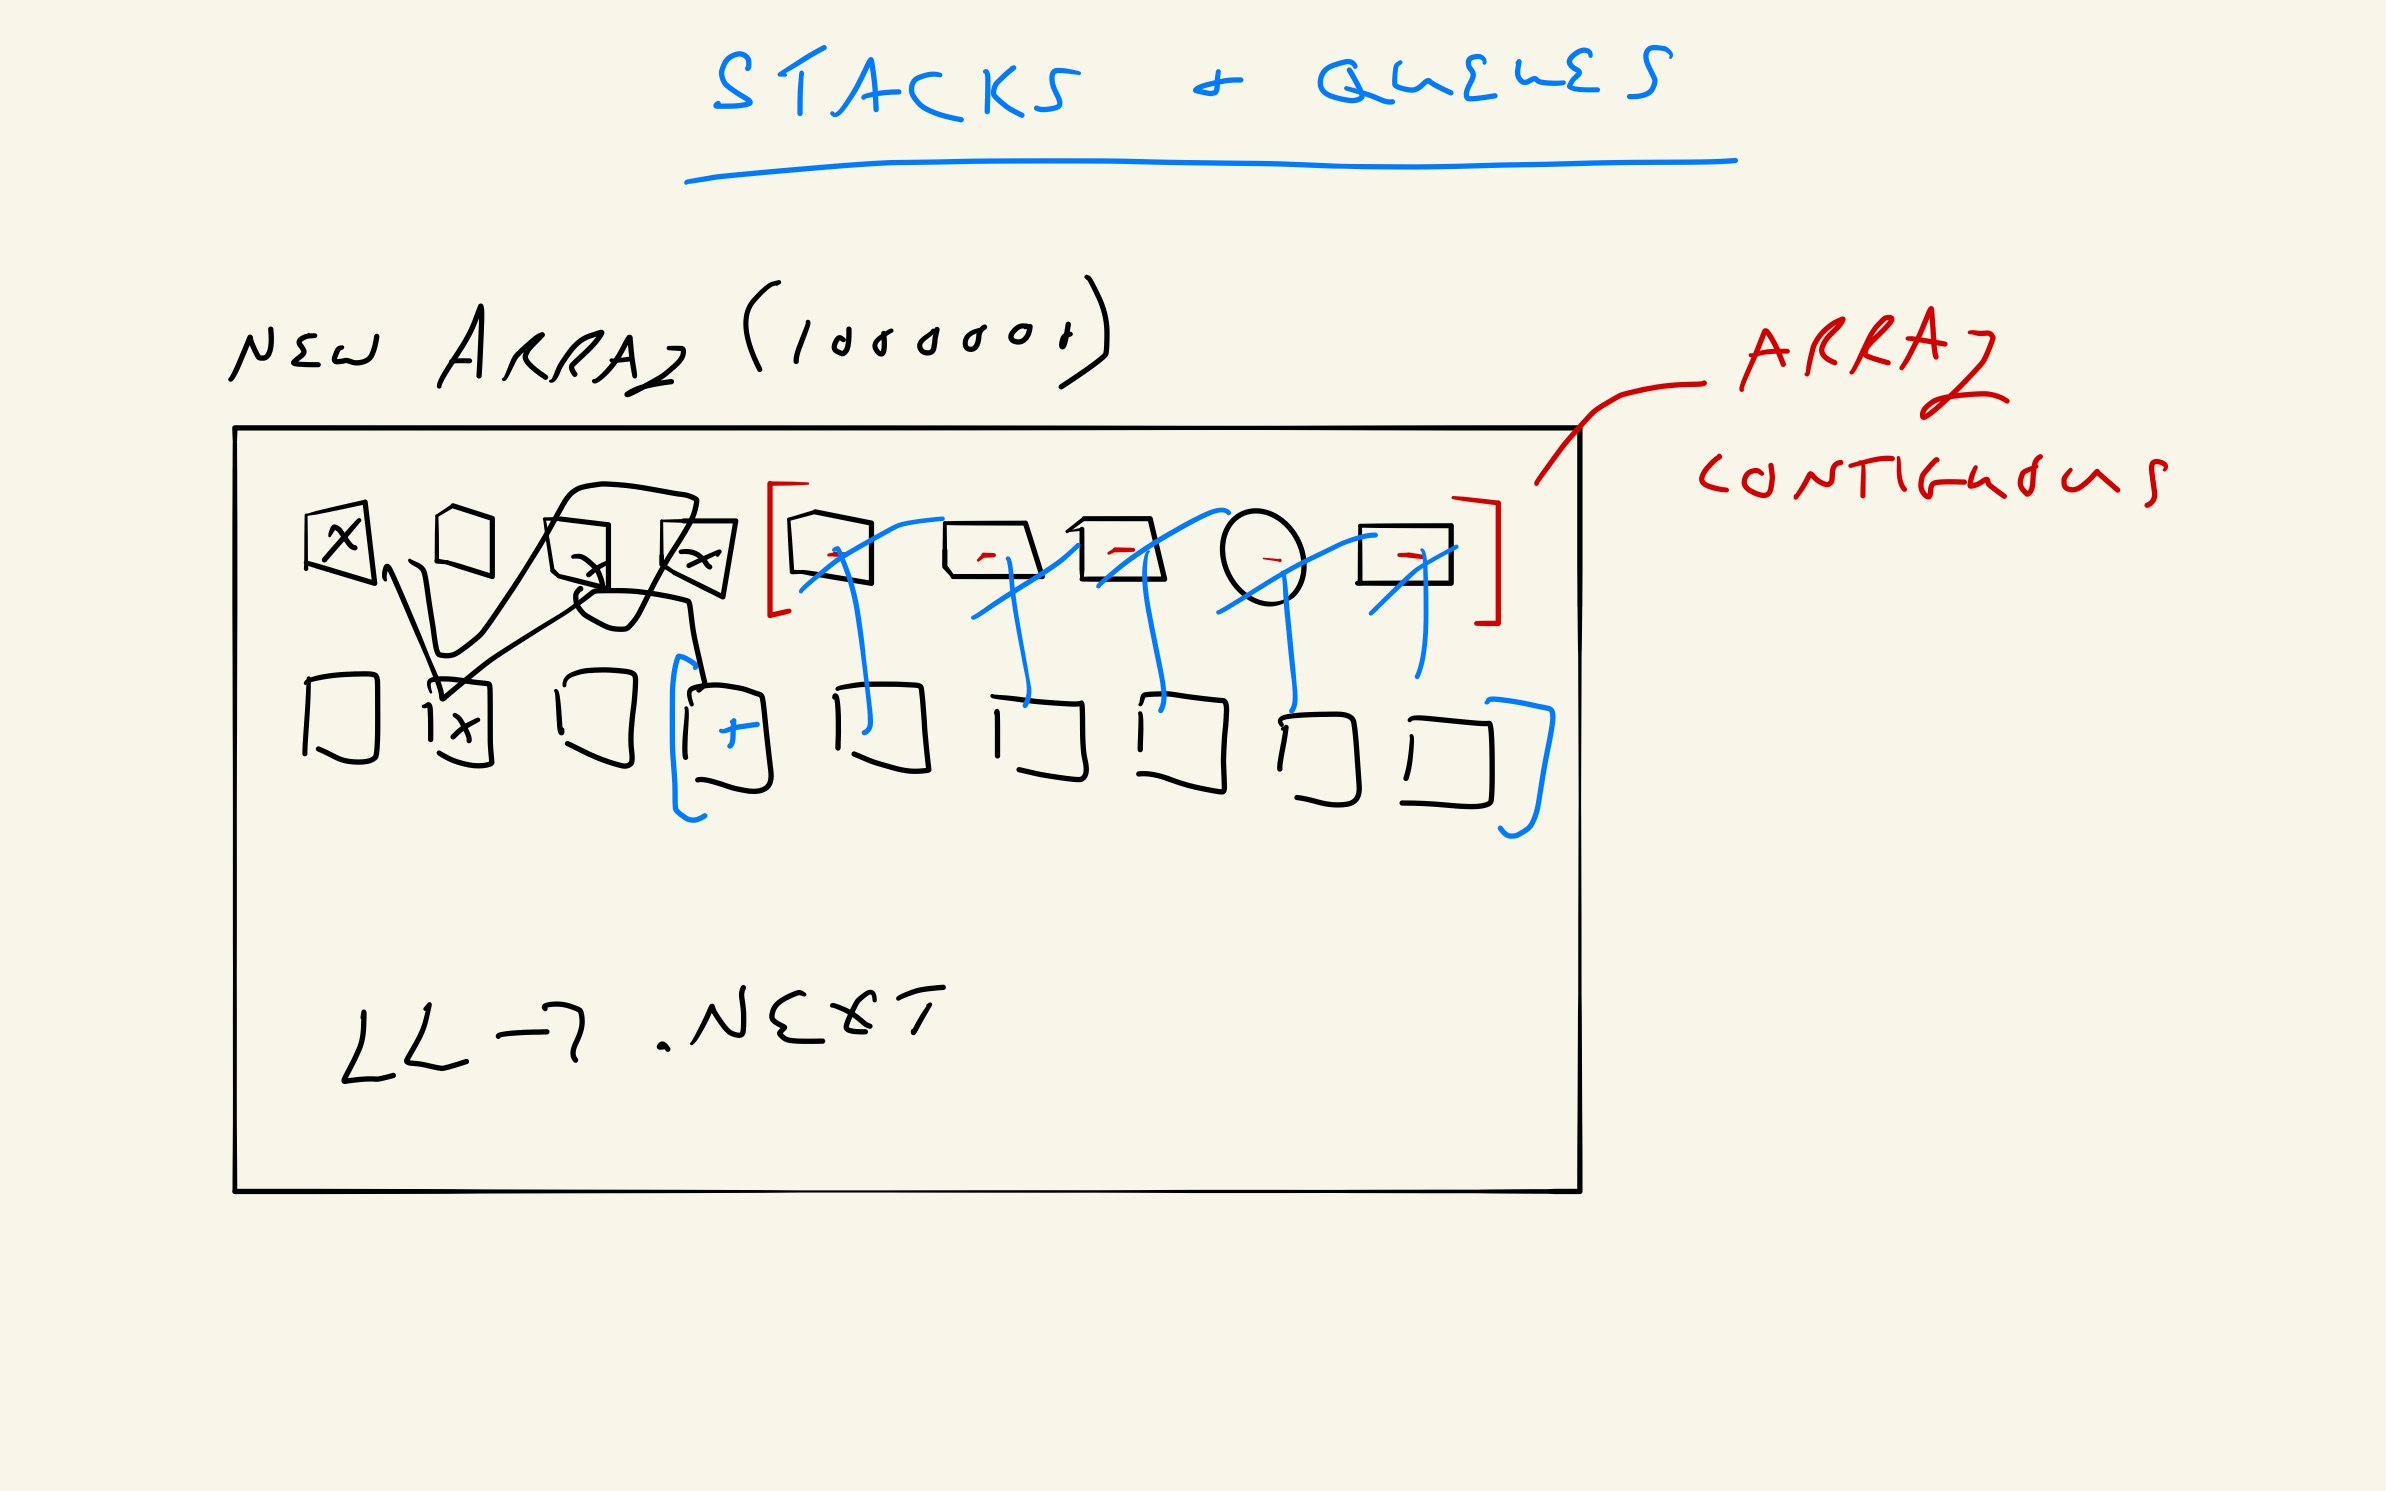 STACKS + QUEUES
NEW ARRAY (1000000)
ARRAY
CONTIGUOUS
LL → .NEXT